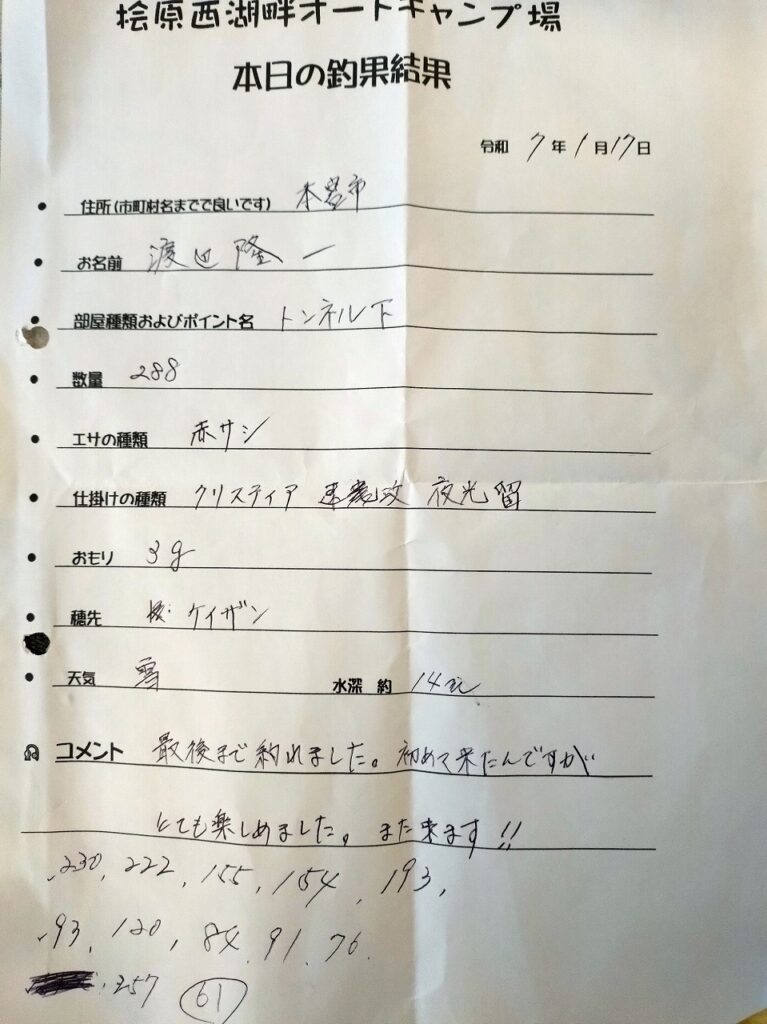 桧原西湖畔オートキャンプ場
本日の釣果結果
令和 7年1月17日
住所(市町村名まででで良いです) 本宮市
お名前 渡辺 隆一
部屋種類およびポイント名 トンネル下
数量 288
エサの種類 赤サシ
仕掛けの種類 クリスティア 速攻 夜光留
おもり 3g
穂先 ケイザン
天気 雪 水深 約 14m
コメント 最後まで釣れました。初めて来たんですが
とても楽しめました。また来ます!!
230, 222, 155, 154, 193,
93, 120, 84, 91, 76.
257 61